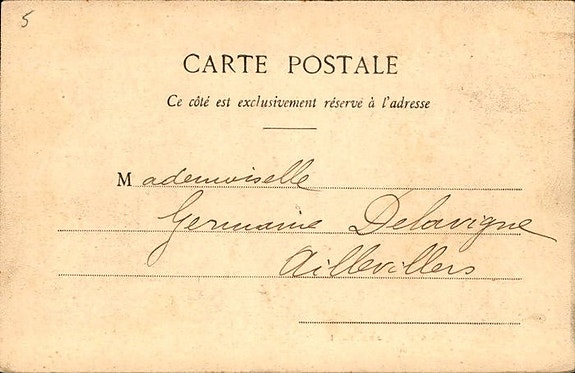 5
CARTE POSTALE
Ce côté est exclusivement réservé à l'adresse
Mademoiselle
Germaine Delavigne
Aillevillers